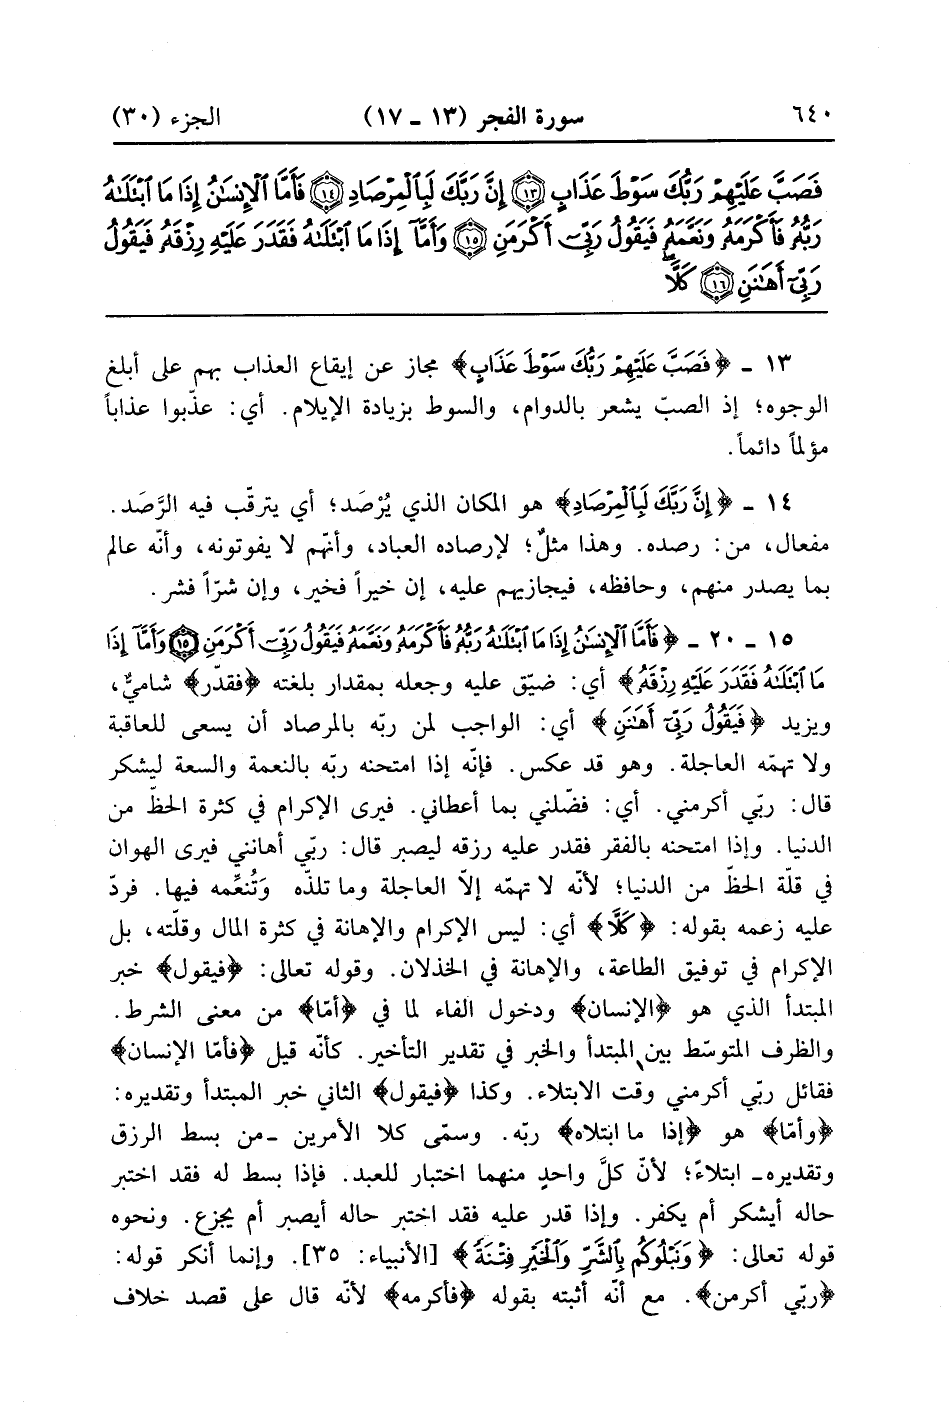 ٦٤٠ سورة الفجر (١٣ ـ ١٧) الجزء (٣٠)
فَصَبَّ عَلَيْهِمْ رَبُّكَ سَوْطَ عَذَابٍ ﴿١٣﴾ إِنَّ رَبَّكَ لَبِالْمِرْصَادِ ﴿١٤﴾ فَأَمَّا الْإِنسَٰنُ إِذَا مَا ابْتَلَىٰهُ
رَبُّهُ فَأَكْرَمَهُ وَنَعَّمَهُ فَيَقُولُ رَبِّي أَكْرَمَنِ ﴿١٥﴾ وَأَمَّا إِذَا مَا ابْتَلَىٰهُ فَقَدَرَ عَلَيْهِ رِزْقَهُ فَيَقُولُ
رَبِّي أَهَٰنَنِ ﴿١٦﴾ كَلَّا
١٣ ـ ﴿فَصَبَّ عَلَيْهِمْ رَبُّكَ سَوْطَ عَذَابٍ﴾ مجاز عن إيقاع العذاب بهم على أبلغ
الوجوه؛ إذ الصبّ يشعر بالدوام، والسوط بزيادة الإيلام. أي: عذّبوا عذاباً
مؤلماً دائماً.
١٤ ـ ﴿إِنَّ رَبَّكَ لَبِالْمِرْصَادِ﴾ هو المكان الذي يُرْصَد؛ أي يترقّب فيه الرَّصَد.
مفعال، من: رصده. وهذا مثلٌ؛ لإرصاده العباد، وأنّهم لا يفوتونه، وأنّه عالم
بما يصدر منهم، وحافظه، فيجازيهم عليه، إن خيراً فخير، وإن شرّاً فشر.
١٥ ـ ٢٠ ـ ﴿فَأَمَّا الْإِنسَٰنُ إِذَا مَا ابْتَلَىٰهُ رَبُّهُ فَأَكْرَمَهُ وَنَعَّمَهُ فَيَقُولُ رَبِّي أَكْرَمَنِ ﴿١٥﴾ وَأَمَّا إِذَا
مَا ابْتَلَىٰهُ فَقَدَرَ عَلَيْهِ رِزْقَهُ﴾ أي: ضيّق عليه وجعله بمقدار بلغته ﴿فقدّر﴾ شاميٌّ،
ويزيد ﴿فَيَقُولُ رَبِّي أَهَٰنَنِ﴾ أي: الواجب لمن ربّه بالمرصاد أن يسعى للعاقبة
ولا تهمّه العاجلة. وهو قد عكس. فإنّه إذا امتحنه ربّه بالنعمة والسعة ليشكر
قال: ربّي أكرمني. أي: فضّلني بما أعطاني. فيرى الإكرام في كثرة الحظّ من
الدنيا. وإذا امتحنه بالفقر فقدر عليه رزقه ليصبر قال: ربّي أهانني فيرى الهوان
في قلّة الحظّ من الدنيا؛ لأنّه لا تهمّه إلاّ العاجلة وما تلذّه وَتُنعِّمه فيها. فردّ
عليه زعمه بقوله: ﴿كَلَّا﴾ أي: ليس الإكرام والإهانة في كثرة المال وقلّته، بل
الإكرام في توفيق الطاعة، والإهانة في الخذلان. وقوله تعالى: ﴿فيقول﴾ خبر
المبتدأ الذي هو ﴿الإنسان﴾ ودخول الفاء لما في ﴿أمّا﴾ من معنى الشرط.
والظرف المتوسّط بين المبتدأ والخبر في تقدير التأخير. كأنّه قيل ﴿فأمّا الإنسان﴾
فقائل ربّي أكرمني وقت الابتلاء. وكذا ﴿فيقول﴾ الثاني خبر المبتدأ وتقديره:
﴿وأمّا﴾ هو ﴿إذا ما ابتلاه﴾ ربّه. وسمّى كلا الأمرين ـ من بسط الرزق
وتقديره ـ ابتلاءً؛ لأنّ كلَّ واحدٍ منهما اختبار للعبد. فإذا بسط له فقد اختبر
حاله أيشكر أم يكفر. وإذا قدر عليه فقد اختبر حاله أيصبر أم يجزع. ونحوه
قوله تعالى: ﴿وَنَبْلُوكُم بِالشَّرِّ وَالْخَيْرِ فِتْنَةً﴾ [الأنبياء: ٣٥]. وإنما أنكر قوله:
﴿ربّي أكرمن﴾. مع أنّه أثبته بقوله ﴿فأكرمه﴾ لأنّه قال على قصد خلاف